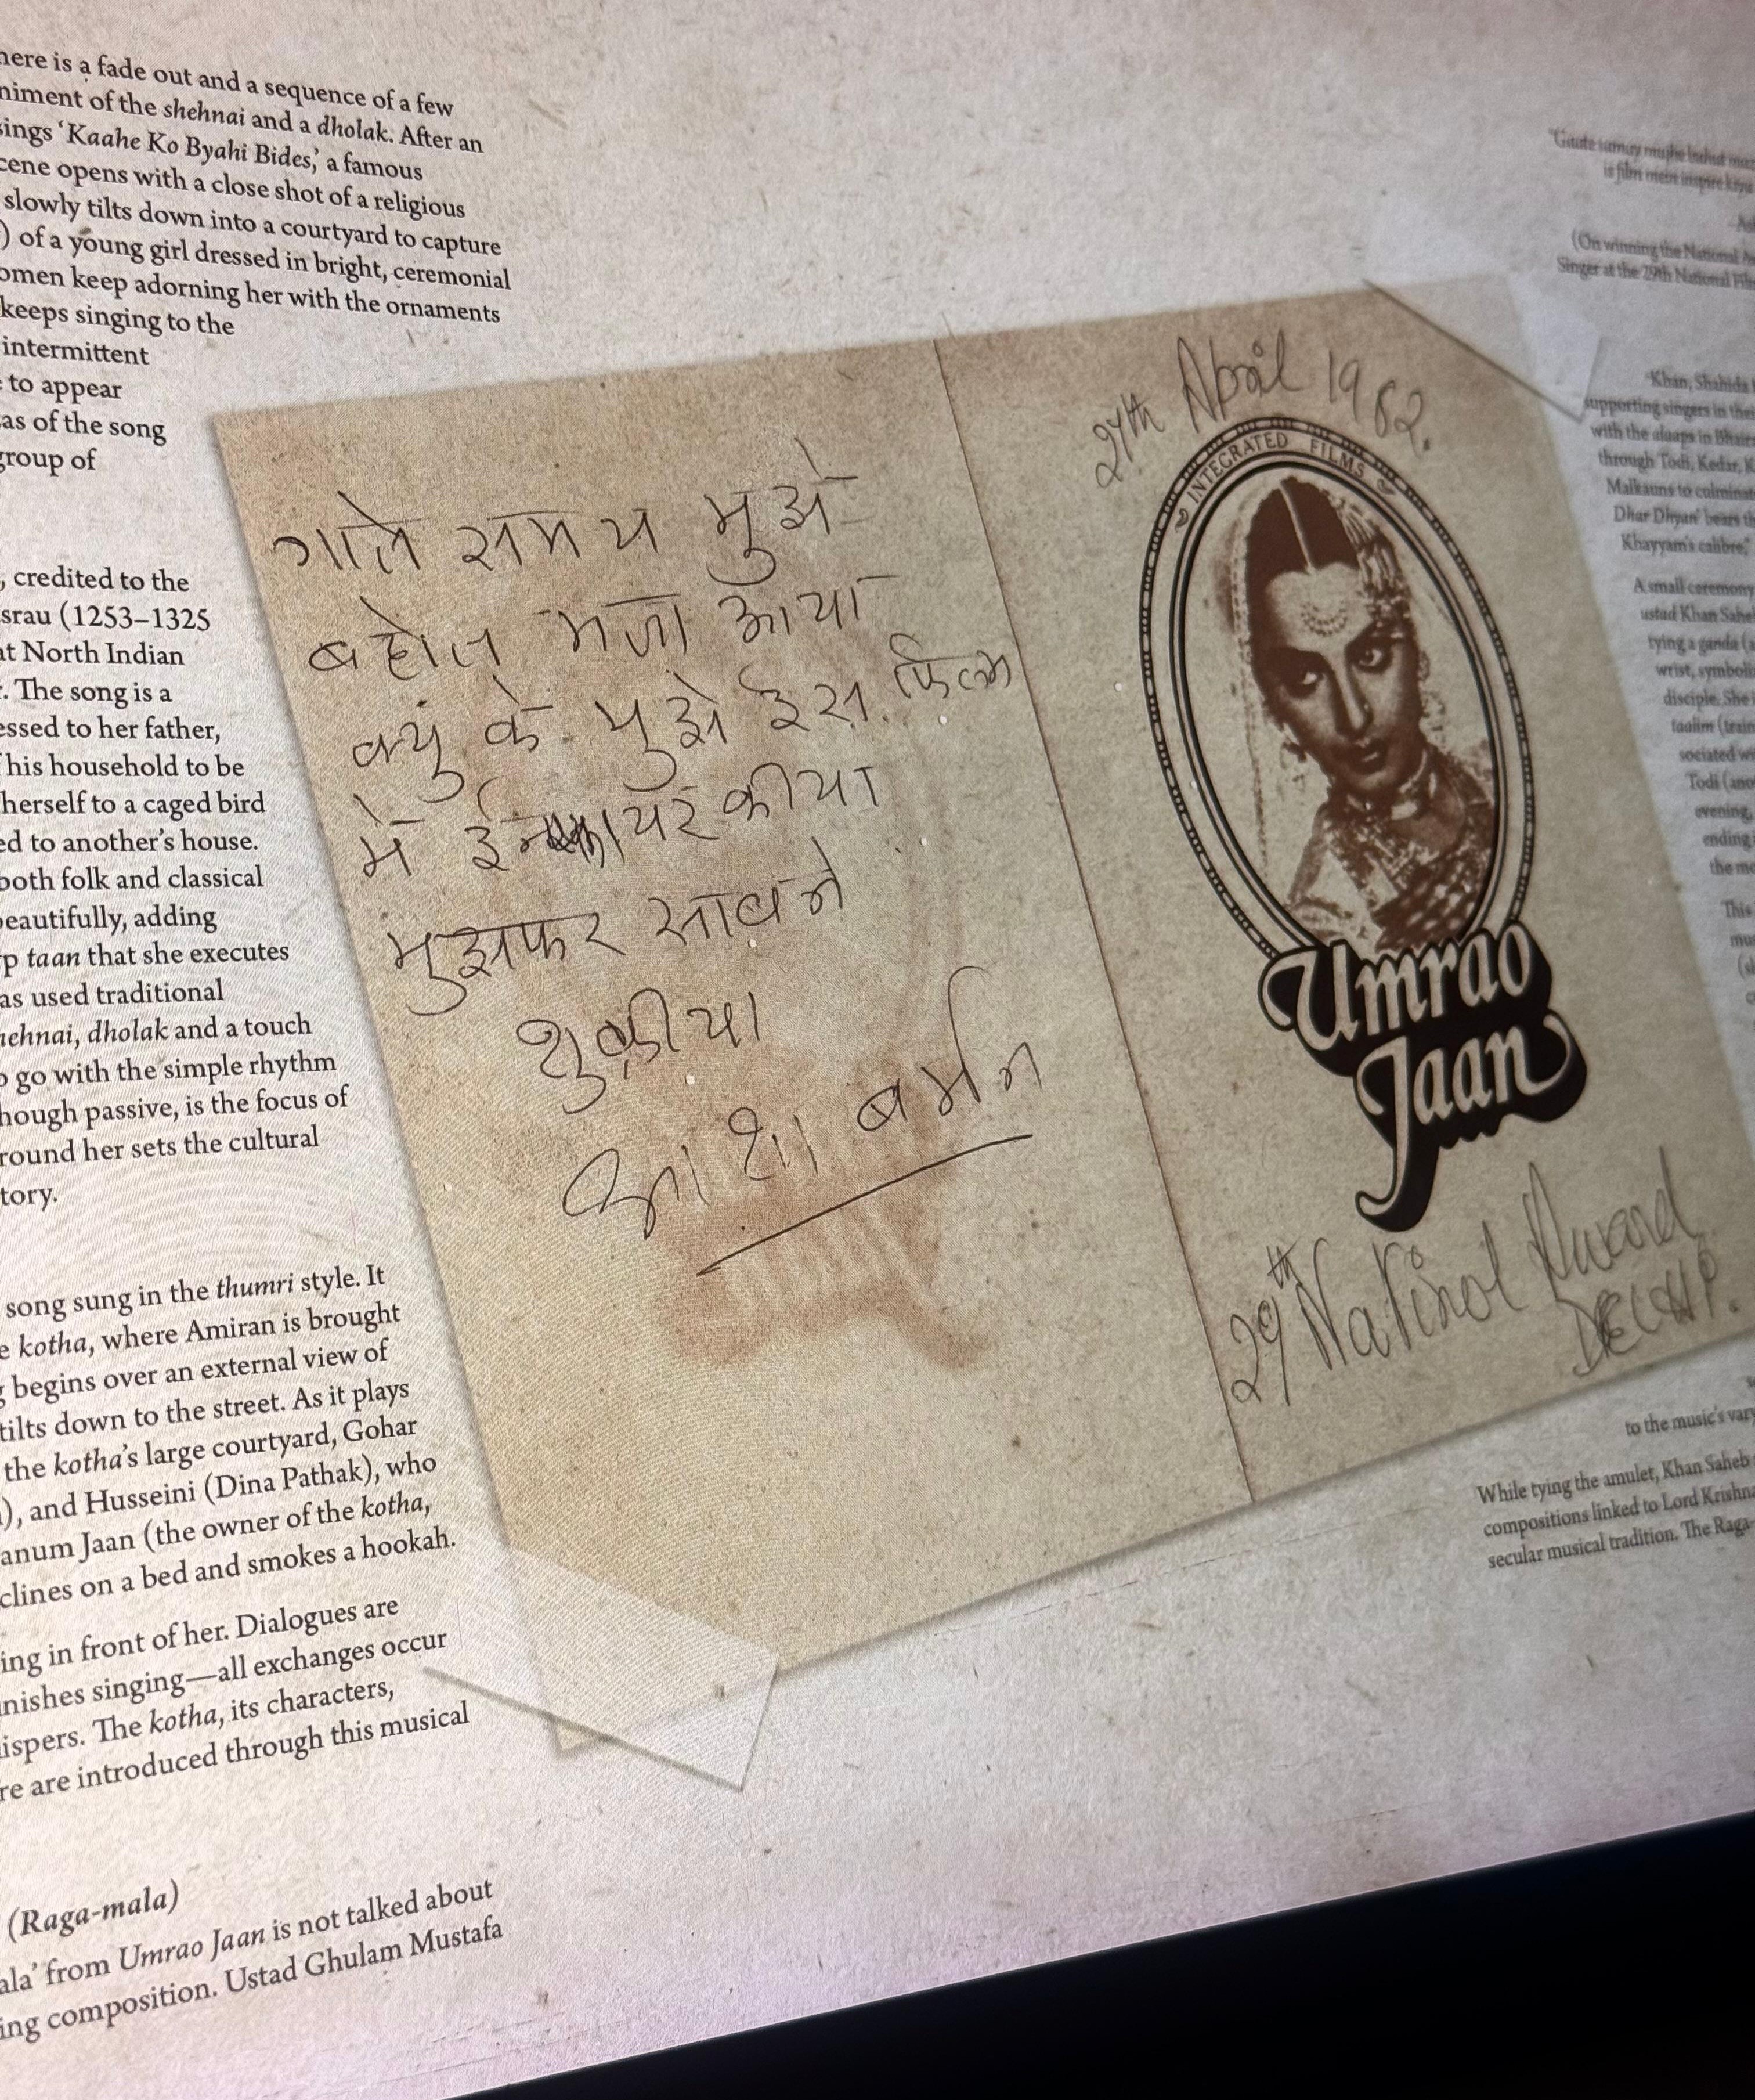 here is a fade out and a sequence of a few
niment of the shehnai and a dholak. After an
sings ‘Kaahe Ko Byahi Bides,’ a famous
cene opens with a close shot of a religious
slowly tilts down into a courtyard to capture
) of a young girl dressed in bright, ceremonial
omen keep adorning her with the ornaments
keeps singing to the
intermittent
to appear
as of the song
group of
, credited to the
srau (1253–1325
at North Indian
. The song is a
essed to her father,
his household to be
herself to a caged bird
ed to another’s house.
both folk and classical
beautifully, adding
p taan that she executes
as used traditional
hehnai, dholak and a touch
o go with the simple rhythm
hough passive, is the focus of
round her sets the cultural
tory.
song sung in the thumri style. It
e kotha, where Amiran is brought
g begins over an external view of
tilts down to the street. As it plays
the kotha’s large courtyard, Gohar
), and Husseini (Dina Pathak), who
anum Jaan (the owner of the kotha,
clines on a bed and smokes a hookah.
ing in front of her. Dialogues are
nishes singing—all exchanges occur
ispers. The kotha, its characters,
re are introduced through this musical
(Raga-mala)
ala’ from Umrao Jaan is not talked about
ing composition. Ustad Ghulam Mustafa
गाते समय मुझे
बहोत मजा आया
क्युं के मुझे ईस फिल्म
में कीया
मुझफर साबने
शुक्रीया
आशा बर्मन
27th April 1982.
INTEGRATED FILMS
Umrao
Jaan
29th Natinol Award
DELHI.
"Gaate samay mujhe bahut
is film mein inspire kiya
(On winning the National
Singer at the 29th National
"Khan, Shahida
supporting singers in
with the alaaps in
through Todi, Kedar,
Malkauns to
Dhar Dhyan' bears
Khayyam's calibre."
A small ceremony
ustad Khan
tying a ganda
wrist, symbol
disciple. She
taalim (train
sociated
Todi (
evening,
ending
the
This
to the music's vary
While tying the amulet, Khan Saheb
compositions linked to Lord Krishna
secular musical tradition. The Raga-